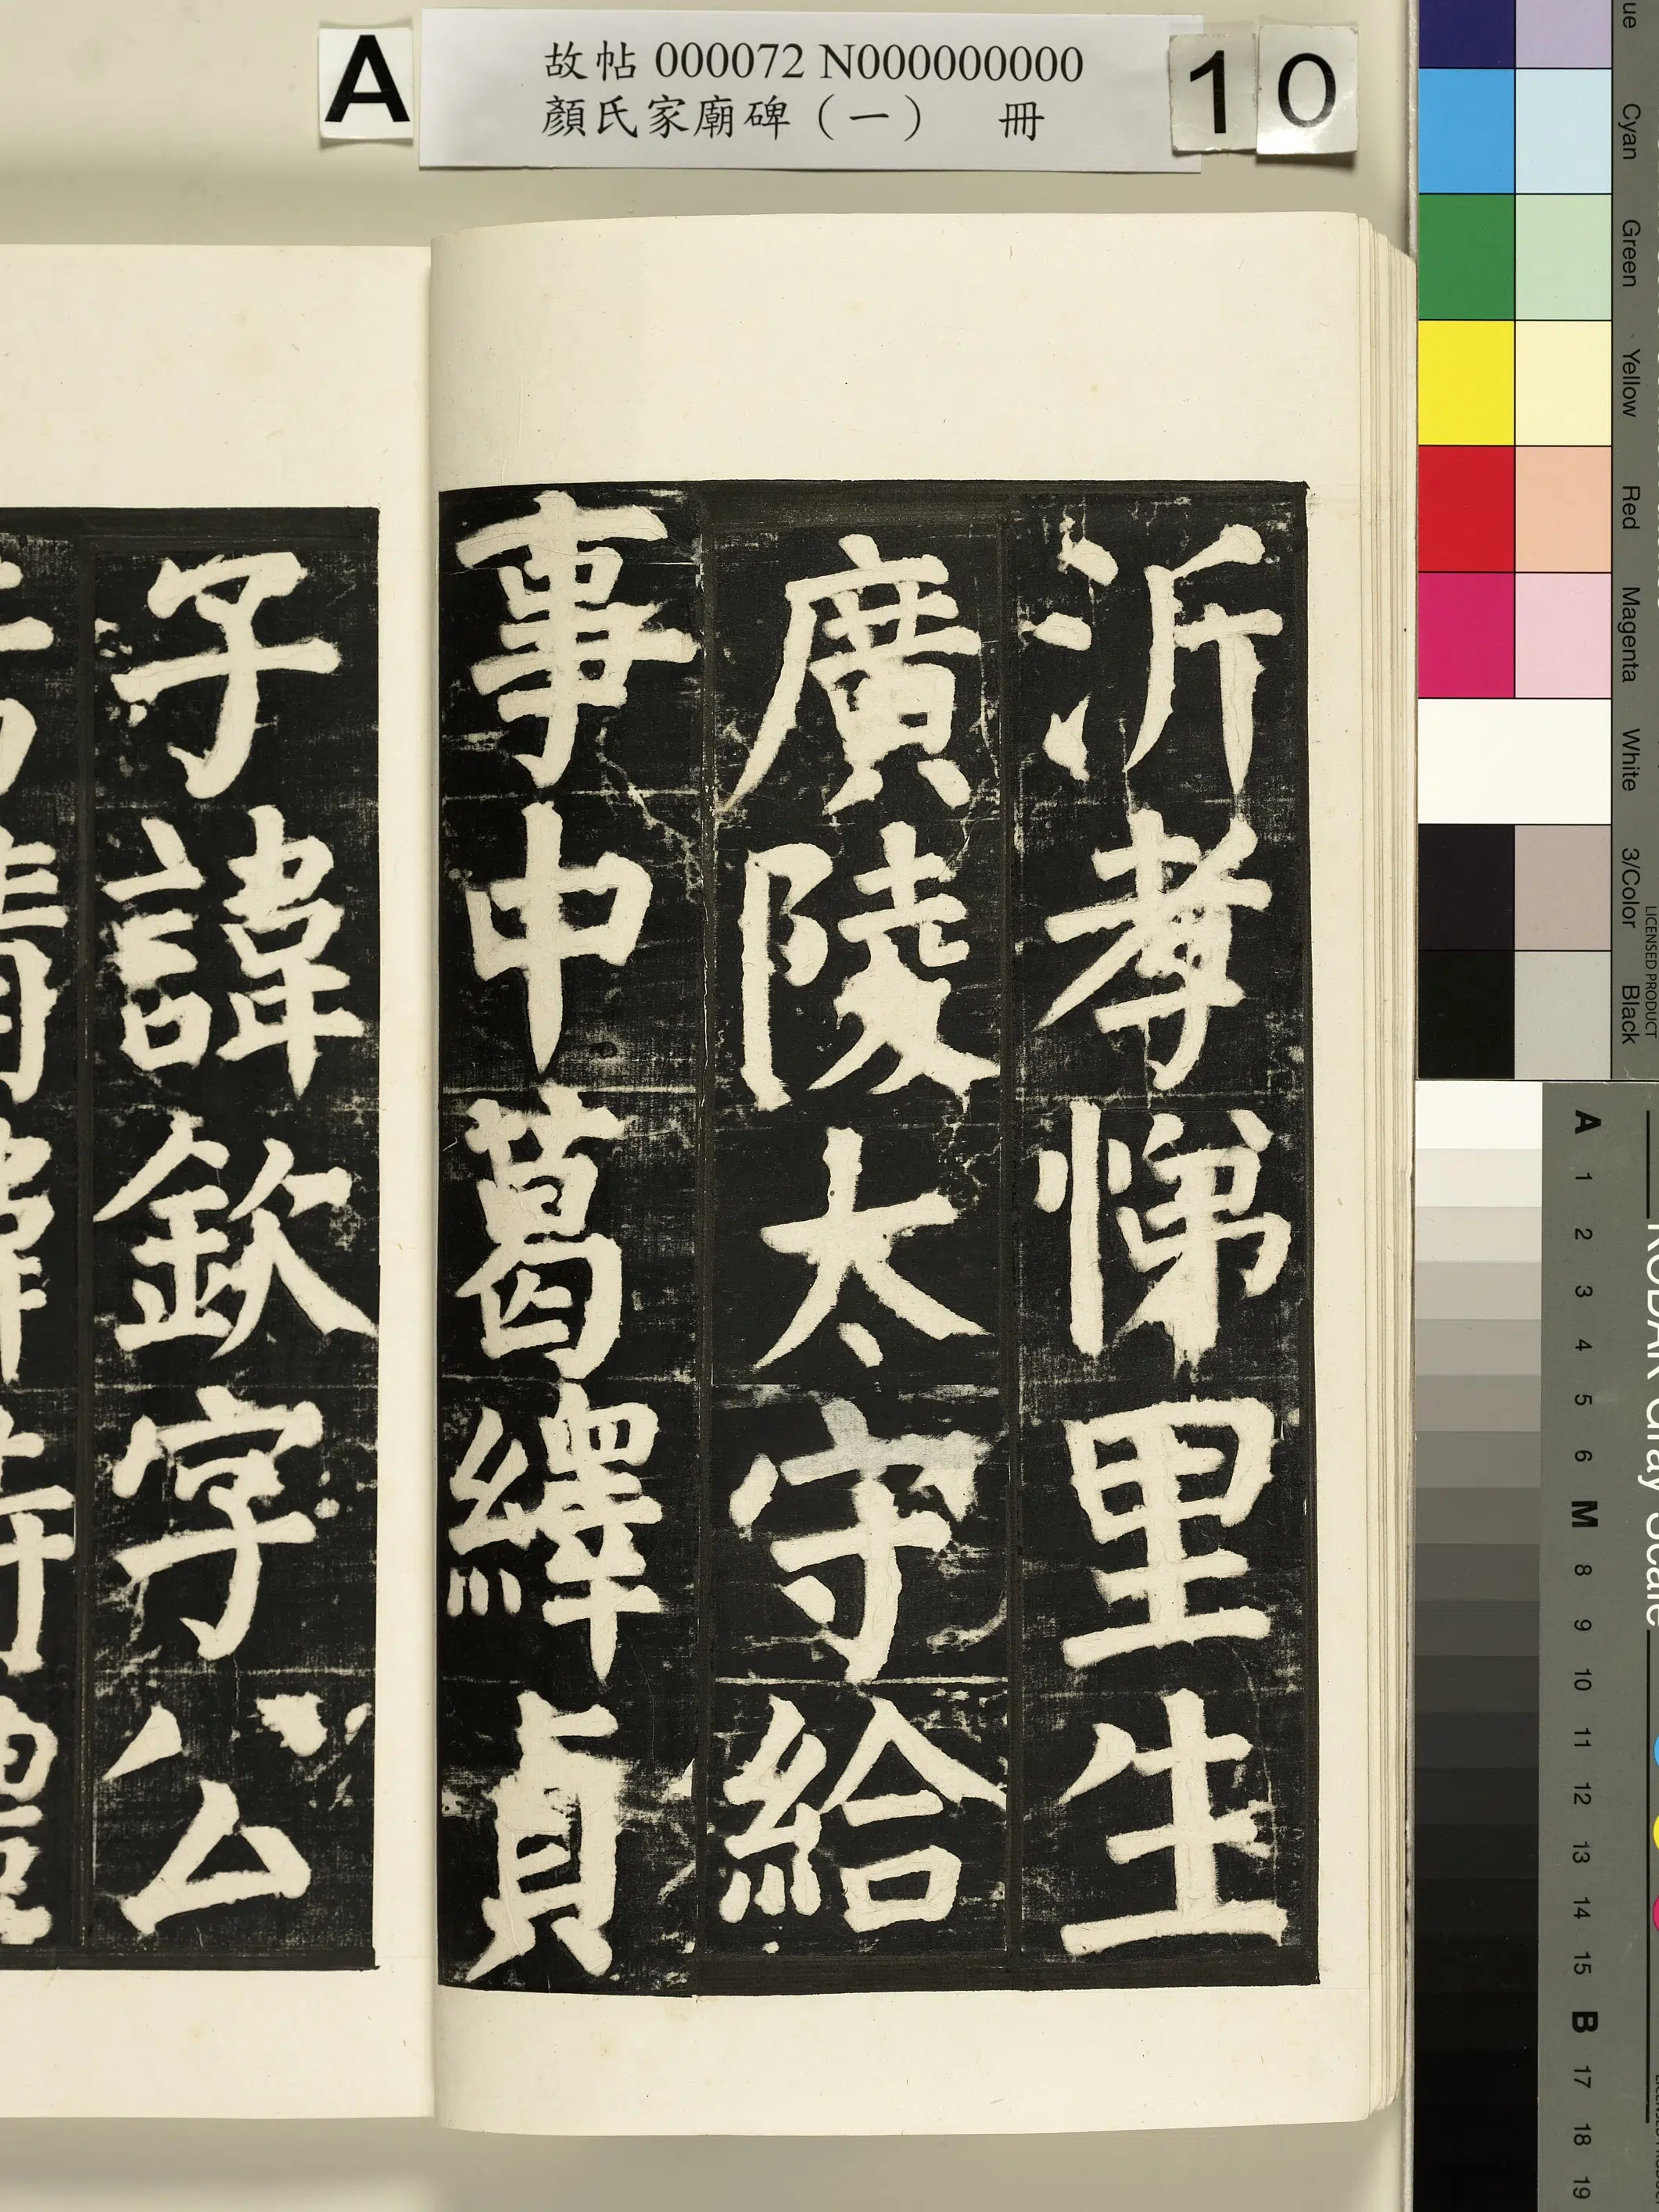 A
故帖 000072 N000000000
顏氏家廟碑（一） 冊
10
沂孝悌里生
廣陵太守給
事中葛繹貞
子諱欽字公
Cyan
Green
Yellow
Red
Magenta
White
3/Color
Black
LICENSED PRODUCT
A 1 2 3 4 5 6 M 8 9 10 11 12 13 14 15 B 17 18 19
KODAK Gray Scale